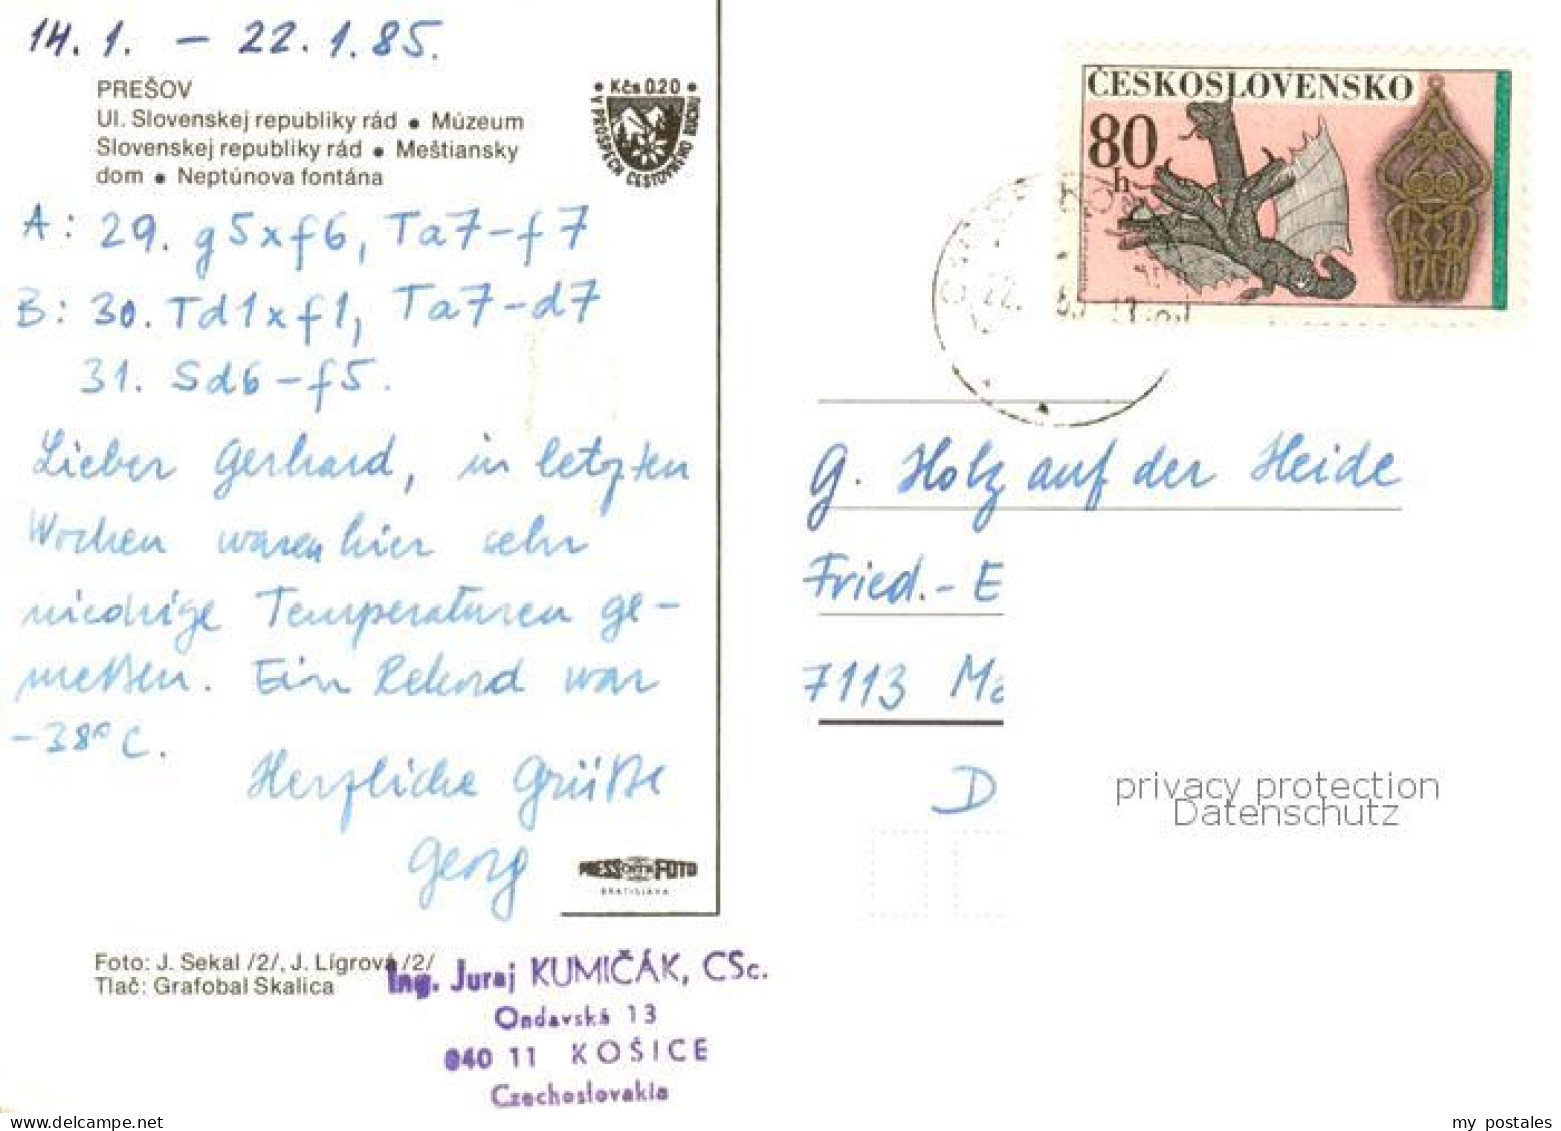 14. 1. – 22. 1. 85.
PREŠOV
Ul. Slovenskej republiky rád • Múzeum
Slovenskej republiky rád • Meštiansky
dom • Neptúnova fontána
• Kčs 0.20 •
V PROSPECH CESTOVNÉHO RUCHU
A: 29. g5xf6, Ta7–f7
B: 30. Td1xf1, Ta7–d7
31. Sd6–f5.
Lieber Gerhard, in letzten
Wochen waren hier sehr
niedrige Temperaturen ge-
meßen. Ein Rekord war
–38°C.
Herzliche Grüße
Georg
PRESSFOTO
BRATISLAVA
Foto: J. Sekal /2/, J. Lígrová /2/
Tlač: Grafobal Skalica
Ing. Juraj KUMIČÁK, CSc.
Ondavská 13
040 11 KOŠICE
Czechoslovakia
ČESKOSLOVENSKO
80
h
G. Holz auf der Heide
Fried.- E
7113 Ma
D
privacy protection
Datenschutz
my postales